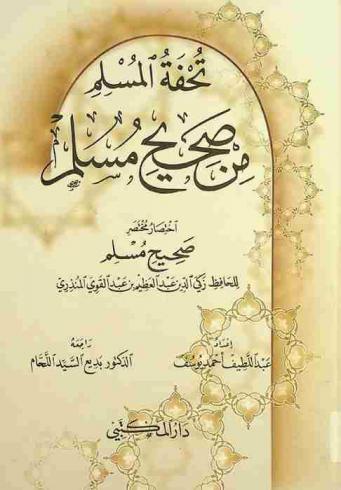 تُحْفَةُ المُسْلِمِ
مِنْ صَحِيحِ مُسْلِمٍ
اختِصَارُ مُخْتَصَر
صَحِيحِ مُسْلِم
للحَافِظِ زَكِيّ الدِّينِ عَبْدِ العَظِيمِ بنِ عَبْدِ القَوِيِّ المُنْذِرِيّ
إعْدَادُ
عَبْد اللَّطِيف أَحْمَد يُوسُف
رَاجَعَهُ
الدكتور بَدِيع السَّيِّد اللَّحَّام
دَارُ المَكْتَبِيّ